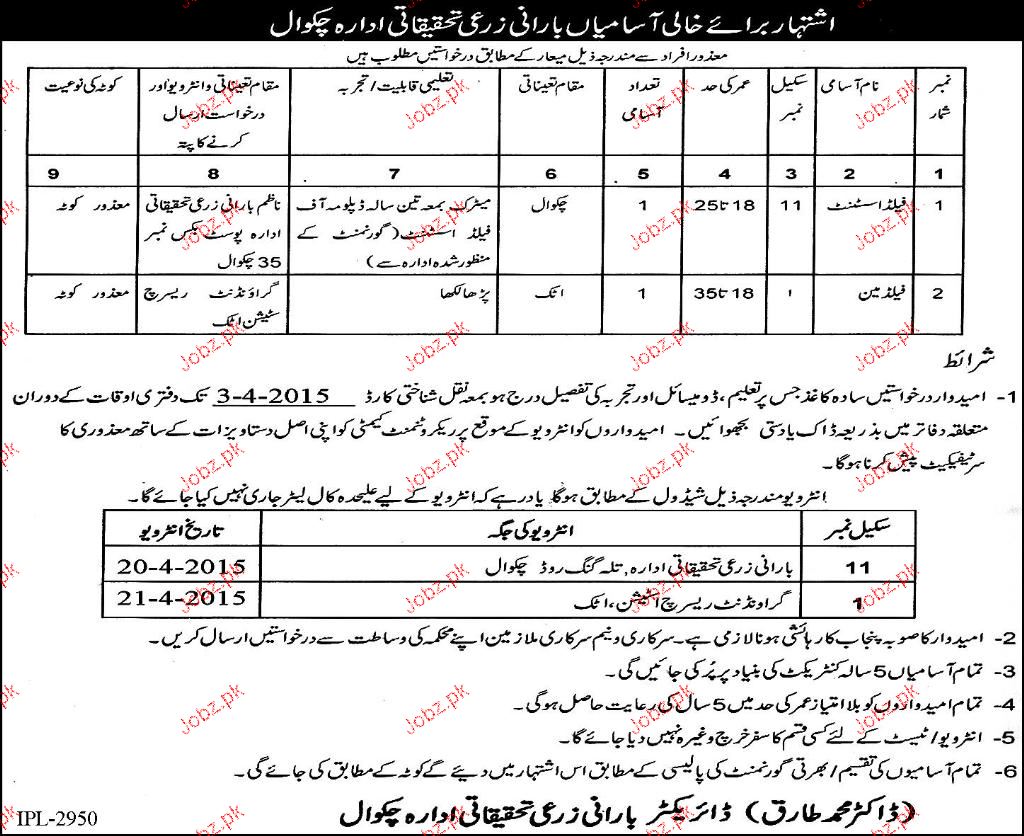 اشتہار برائے خالی آسامیاں بارانی زرعی تحقیقاتی ادارہ چکوال
معذور افراد سے مندرجہ ذیل معیار کے مطابق درخواستیں مطلوب ہیں
نمبر شمار نام آسامی سکیل نمبر عمر کی حد تعداد آسامی مقام تعیناتی تعلیمی قابلیت/تجربہ مقام تعیناتی و انٹرویو اور درخواست ارسال کرنے کا پتہ کوٹہ کی نوعیت
1 2 3 4 5 6 7 8 9
1 فیلڈ اسسٹنٹ 11 18 تا 25 1 چکوال میٹرک بمعہ تین سالہ ڈپلومہ آف فیلڈ اسسٹنٹ (گورنمنٹ کے منظور شدہ ادارہ سے) ناظم بارانی زرعی تحقیقاتی ادارہ پوسٹ بکس نمبر 35 چکوال معذور کوٹہ
2 فیلڈ مین ۱ 18 تا 35 1 اٹک پڑھا لکھا گراؤنڈنٹ ریسرچ سٹیشن اٹک معذور کوٹہ
شرائط
1- امیدوار درخواستیں سادہ کاغذ جس پر تعلیم، ڈومیسائل اور تجربہ کی تفصیل درج ہو بمعہ نقل شناختی کارڈ 3-4-2015 تک دفتری اوقات کے دوران
متعلقہ دفاتر میں بذریعہ ڈاک یا دستی بھجوائیں۔ امیدواروں کو انٹرویو کے موقع پر ریکروٹمنٹ کمیٹی کو اپنی اصل دستاویزات کے ساتھ معذوری کا
سرٹیفکیٹ پیش کرنا ہوگا۔
انٹرویو مندرجہ ذیل شیڈول کے مطابق ہوگا یاد رہے کہ انٹرویو کے لیے علیحدہ کال لیٹر جاری نہیں کیا جائے گا۔
سکیل نمبر انٹرویو کی جگہ تاریخ انٹرویو
11 بارانی زرعی تحقیقاتی ادارہ، تلہ گنگ روڈ چکوال 20-4-2015
1 گراؤنڈنٹ ریسرچ اسٹیشن، اٹک 21-4-2015
2- امیدوار کا صوبہ پنجاب کا رہائشی ہونا لازمی ہے۔ سرکاری و نیم سرکاری ملازمین اپنے محکمہ کی وساطت سے درخواستیں ارسال کریں۔
3- تمام آسامیاں 5 سالہ کنٹریکٹ کی بنیاد پر پُر کی جائیں گی۔
4- تمام امیدواروں کو بلا امتیاز عمر کی حد میں 5 سال کی رعایت حاصل ہوگی۔
5- انٹرویو/ٹیسٹ کے لئے کسی قسم کا سفر خرچ وغیرہ نہیں دیا جائے گا۔
6- تمام آسامیوں کی تقسیم/بھرتی گورنمنٹ کی پالیسی کے مطابق اس اشتہار میں دیئے گے کوٹہ کے مطابق کی جائے گی۔
(ڈاکٹر محمد طارق) ڈائریکٹر بارانی زرعی تحقیقاتی ادارہ چکوال
IPL-2950
Jobz.pk